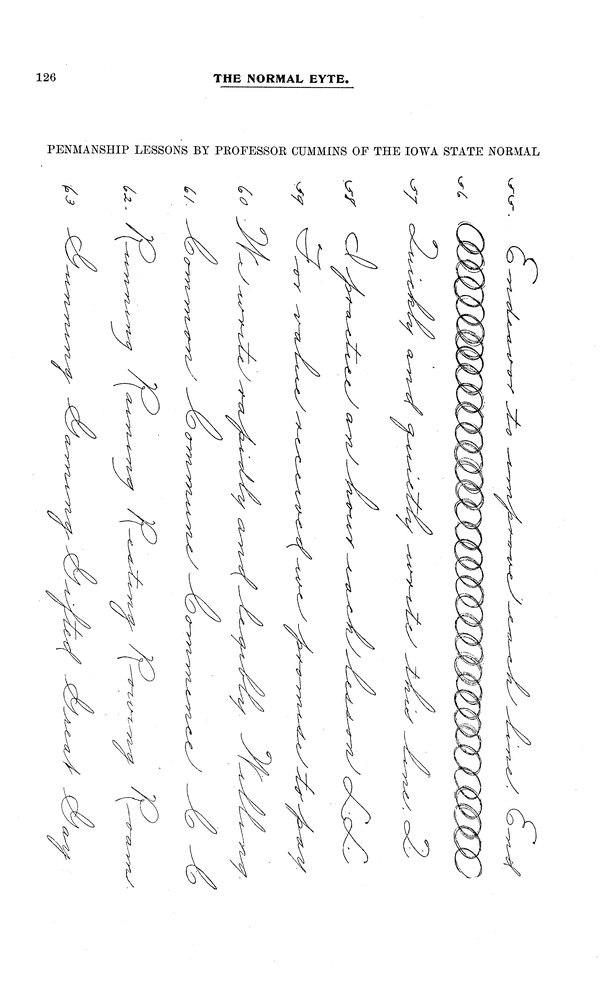 126
THE NORMAL EYTE.
PENMANSHIP LESSONS BY PROFESSOR CUMMINS OF THE IOWA STATE NORMAL
55. Endeavor to improve each line. End
56
57 Quickly and quietly write this line. Q
58 I practice an hour each lesson
59 For value received we promise to pay
60 We write rapidly and legibly Willing
61. Common Commune Commence C C
62. Running Raining Resting Rowing Roams.
63 Gunning Gaming Gifted Great Gay